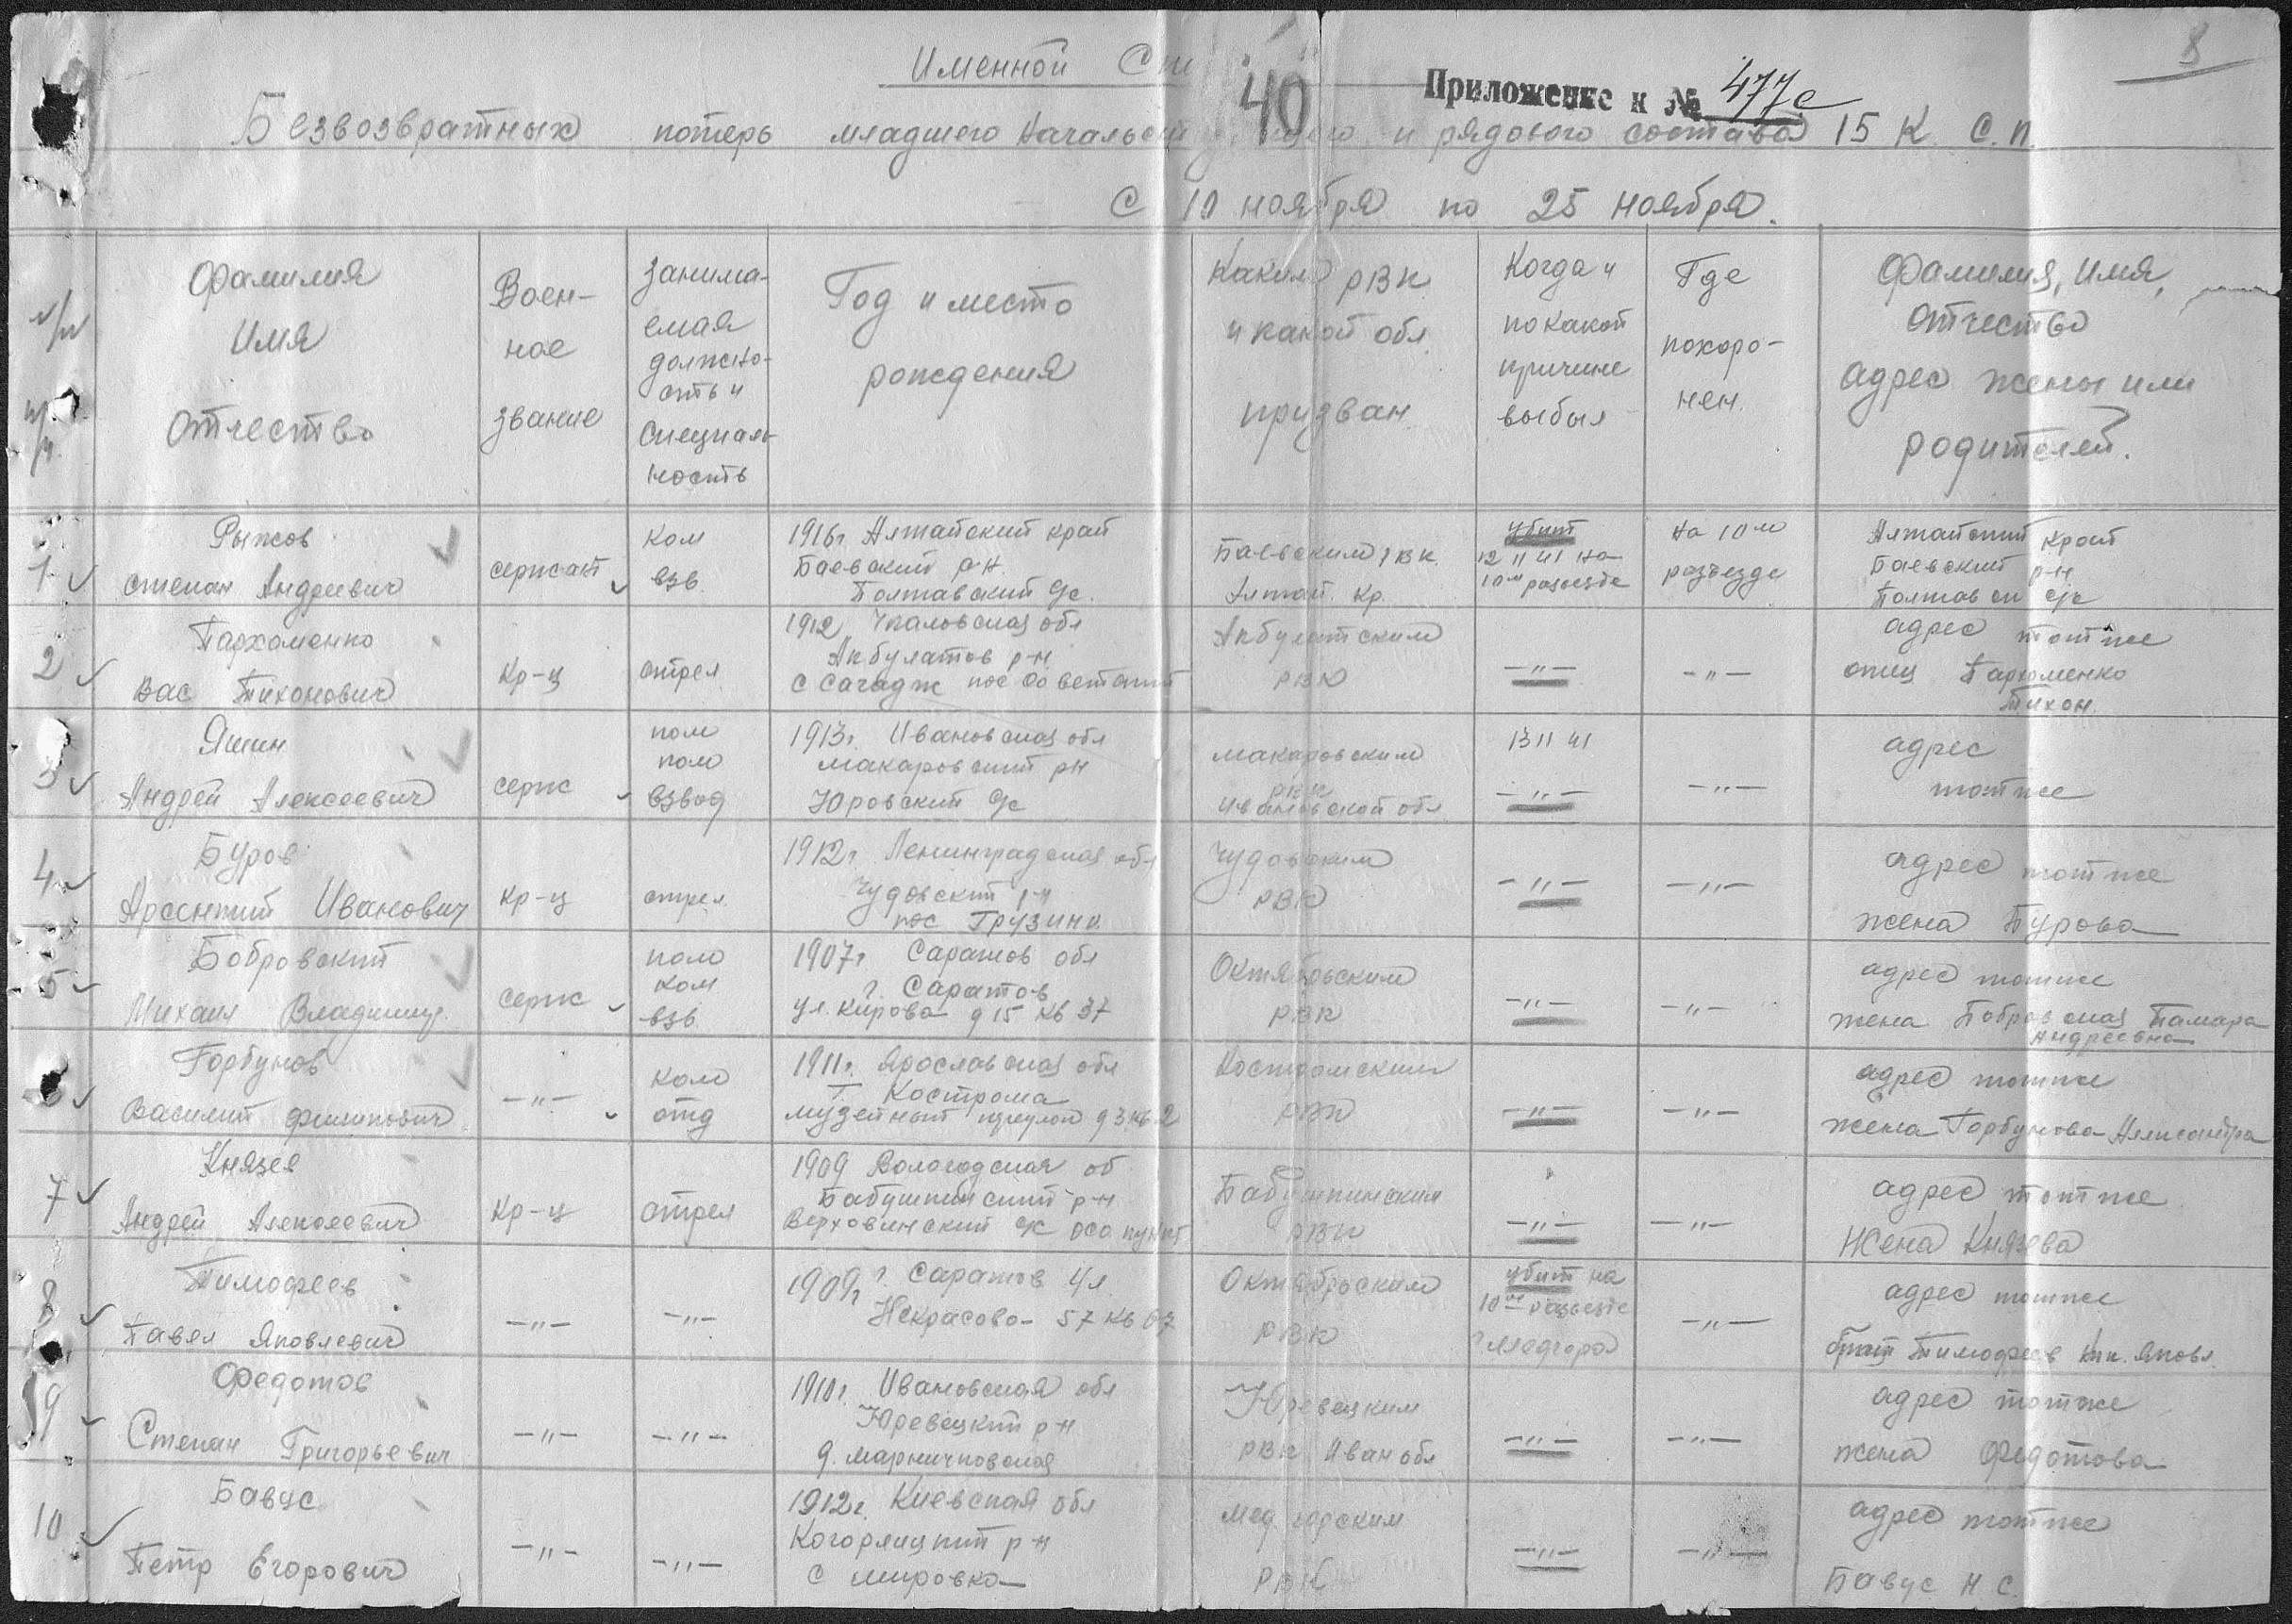 8
Именной
40
Приложение к № 477с
Безвозвратных потерь младшего и рядового состава 15 К С.П.
С 10 ноября по 25 ноября.
Фамилия Имя Отчество
Воен- ное звание
занима- емая должно- сть и специаль- ность
Год и место рождения
Каким РВК и какой обл призван
Когда и по какой причине выбыл
Где похоро- нен.
Фамилия, Имя, Отчество адрес жены или родителей.
1 Рыжов Степан Андреевич
сержант
ком взв.
1916г Алтайский край
Баевский р-н.
Полтавский с/с.
Баевским РВК.
Алтай. кр.
убит 12 11 41 на 10м разъезде
на 10м разъезде
Алтайский край
Баевский р-н
Полтавск с/с
2 Пархоменко Вас Тихонович
Кр-ц
стрел
1912 Чкаловская обл
Акбулатов р-н
Акбулатским РВК
—"—
—"—
адрес тот же
отец Пархоменко Тихон.
3 Яшин Андрей Алексеевич
серж
пом ком взвод
1913г. Ивановская обл
Макаровский рн
Юровский с/с
Макаровским РВК
Ивановской обл
13 11 41
—"—
—"—
адрес тот же
4 Буров Арсентий Иванович
Кр-ц
стрел.
1912г Ленинградская обл
Чудовский р-н
пос Грузино.
Чудовским РВК
—"—
—"—
адрес тот же
жена Бурова
5 Бобровский Михаил Владимир.
серж
пом ком взв.
1907г Саратов обл
г. Саратов
ул. Кирова д 15 кв 37
Октябрьским РВК
—"—
—"—
адрес тот же
жена Бобровская Тамара Андреевна
6 Горбунов Василий Филиппович
—"—
ком отд
1911г. Ярославская обл
г. Кострома
Музейный д 3 кв 2
Костромским РВК
—"—
—"—
адрес тот же
жена Горбунова Александра
7 Князев Андрей Алексеевич
Кр-ц
стрел
1909 Вологодская об
Бабушкинский р-н
Верховинский с/с
Бабушкинским РВК
—"—
—"—
адрес тот же
Жена Князева
8 Тимофеев Павел Яковлевич
—"—
—"—
1909г г. Саратов ул.
Некрасова 57 кв 67
Октябрьским РВК
убит на 10м разъезде
г Медгора
—"—
адрес тот же
брат Тимофеев Яковл.
9 Федотов Степан Григорьевич
—"—
—"—
1910г. Ивановская обл
Юревецкий р-н
Юревецким РВК Иван обл
—"—
—"—
адрес тот же
жена Федотова
10 Бавус Петр Егорович
—"—
—"—
1912г. Киевская обл
Кагорлицкий р-н
с Мировка
Мед. горским РВК
—"—
—"—
адрес тот же
Бавус Н С.